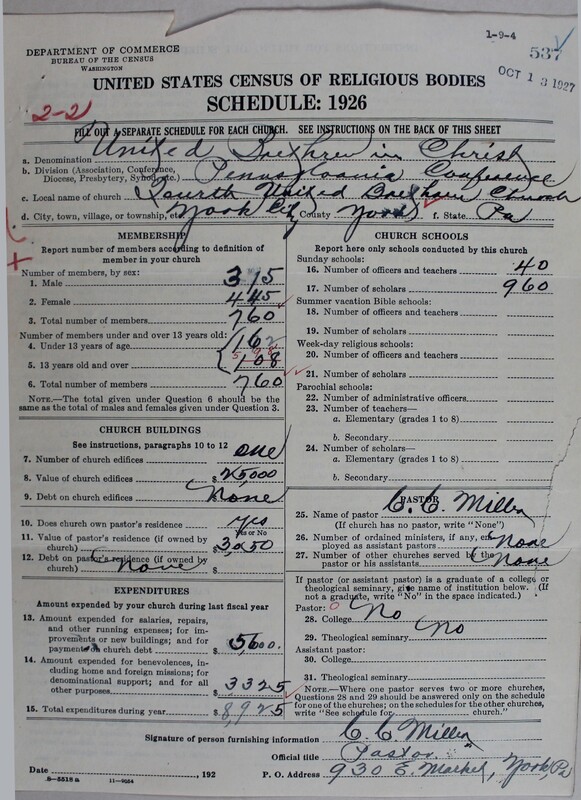 1-9-4
DEPARTMENT OF COMMERCE
BUREAU OF THE CENSUS
WASHINGTON
537
OCT 13 1927
UNITED STATES CENSUS OF RELIGIOUS BODIES
SCHEDULE: 1926
2-2
FILL OUT A SEPARATE SCHEDULE FOR EACH CHURCH. SEE INSTRUCTIONS ON THE BACK OF THIS SHEET
a. Denomination United Brethren in Christ
b. Division (Association, Conference, Diocese, Presbytery, Synod, etc.) Pennsylvania Conference
c. Local name of church Fourth United Brethren Church
d. City, town, village, or township, etc. York City County York f. State Pa
MEMBERSHIP
Report number of members according to definition of
member in your church
Number of members, by sex:
1. Male 315
2. Female 445
3. Total number of members 760
Number of members under and over 13 years old:
4. Under 13 years of age 162
5. 13 years old and over
6. Total number of members 760
NOTE.—The total given under Question 6 should be
the same as the total of males and females given under Question 3.
CHURCH BUILDINGS
See instructions, paragraphs 10 to 12
7. Number of church edifices one
8. Value of church edifices $ 25000
9. Debt on church edifices None
10. Does church own pastor's residence yes
Yes or No
11. Value of pastor's residence (if owned by
church) $
12. Debt on pastor's residence (if owned by
church) None $
EXPENDITURES
Amount expended by your church during last fiscal year
13. Amount expended for salaries, repairs,
and other running expenses; for im-
provements or new buildings; and for
payments on church debt $ 5600.
14. Amount expended for benevolences, in-
cluding home and foreign missions; for
denominational support; and for all
other purposes $ 3325
15. Total expenditures during year $ 8925
CHURCH SCHOOLS
Report here only schools conducted by this church
Sunday schools:
16. Number of officers and teachers 40
17. Number of scholars 960
Summer vacation Bible schools:
18. Number of officers and teachers
19. Number of scholars
Week-day religious schools:
20. Number of officers and teachers
21. Number of scholars
Parochial schools:
22. Number of administrative officers
23. Number of teachers—
a. Elementary (grades 1 to 8)
b. Secondary
24. Number of scholars—
a. Elementary (grades 1 to 8)
b. Secondary
PASTOR
25. Name of pastor C. C. Miller
(If church has no pastor, write "None")
26. Number of ordained ministers, if any, em-
ployed as assistant pastors None
27. Number of other churches served by the
pastor or his assistants None
If pastor (or assistant pastor) is a graduate of a college or
theological seminary, give name of institution below. (If
not a graduate, write "No" in the space indicated.)
Pastor: 0
28. College No
29. Theological seminary No
Assistant pastor:
30. College
31. Theological seminary
NOTE.—Where one pastor serves two or more churches,
Questions 28 and 29 should be answered only on the schedule
for one of the churches; on the schedules for the other churches,
write "See schedule for church."
Signature of person furnishing information C. C. Miller
Official title Pastor
Date , 192 P. O. Address 930 E. Market, York, Pa
8-5518 a 11-9634